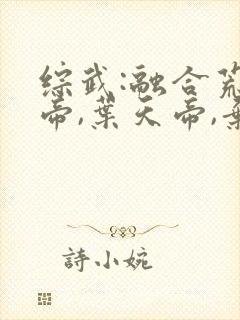 综武:融合荒
帝,葉天帝,
詩小婉